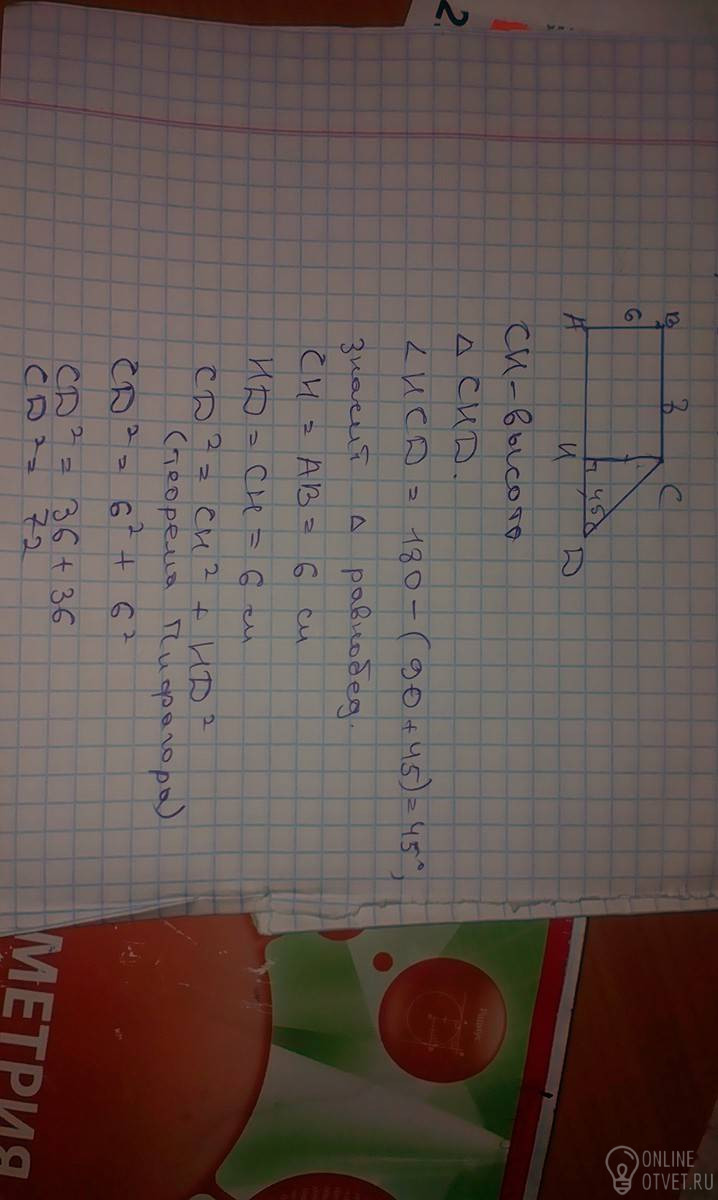 2
B 8 C
6
45°
A H D
CH – высота
△ CHD.
∠HCD = 180 – (90 + 45) = 45°,
значит △ равнобед.
CH = AB = 6 см
HD = CH = 6 см
CD² = CH² + HD²
(теорема Пифагора)
CD² = 6² + 6²
CD² = 36 + 36
CD² = 72
МЕТРИЯ
Радиус
ONLINE
OTVET.RU